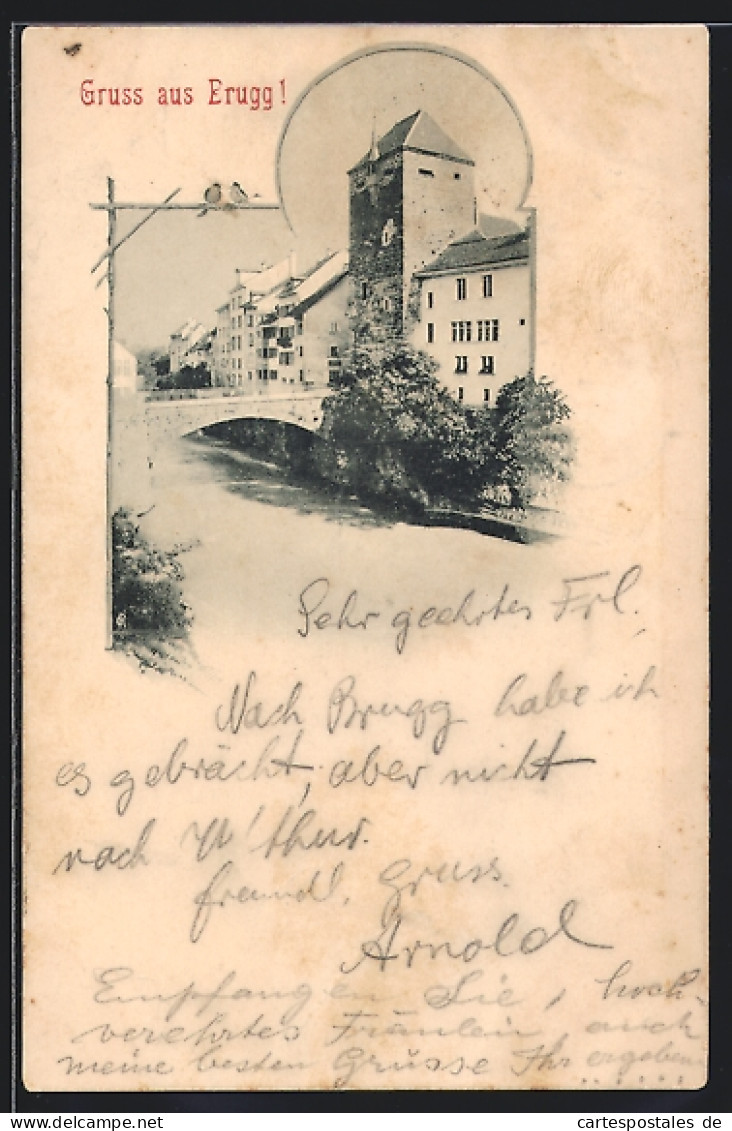 Gruss aus Brugg!
Sehr geehrtes Frl.
Nach Brugg habe ich
es gebracht, aber nicht
nach W'thur.
freundl. Gruss.
Arnold
Empfangen Sie, hoch-
verehrtes Fräulein, auch
meine besten Grüsse Ihr ergeben
cartespostales - de